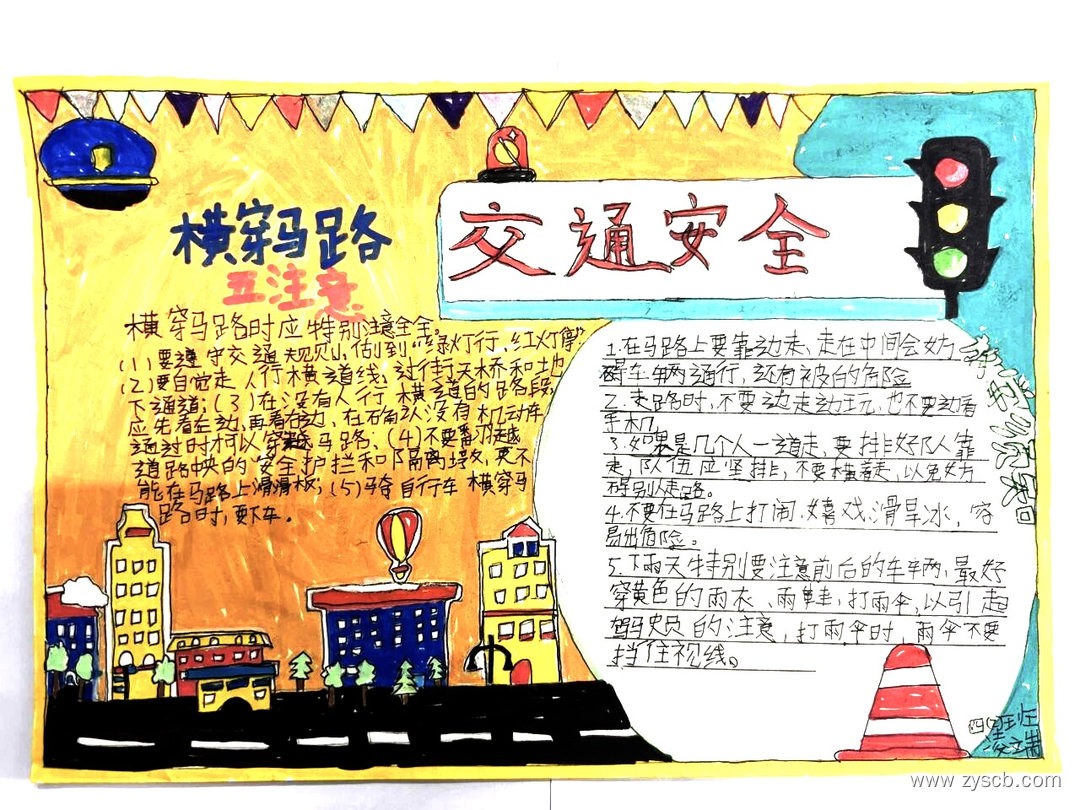 交通安全
横穿马路
五注意
横穿马路时应特别注意全全。
(1)要遵守交通规则，做到"绿灯行，红灯停"
(2)要自觉走人行横道线、过街天桥和地
下通道；(3)在没有人行横道的路段，
应先看左边，再看右边，在确认没有机动车
通过时才可以穿越马路、(4)不要翻越
道路中央的安全护拦和隔离墩，更不
能在马路上滑滑板；(5)骑自行车横穿马
路时，要下车。
1.在马路上要靠边走、走在中间会妨
碍车辆通行，还有被的危险
2.走路时，不要边走边玩，也不要边看
手机。
3.如果是几个人一道走，要排好队靠
走，队伍应竖排，不要横着走，以免妨
碍别人走路。
4.不要在马路上打闹、嬉戏、滑旱冰，容
易出危险。
5.下雨天特别要注意前后的车辆，最好
穿黄色的雨衣、雨鞋，打雨伞，以引起
驾驶员的注意，打雨伞时，雨伞不要
挡住视线。
四班
www.zyscb.com